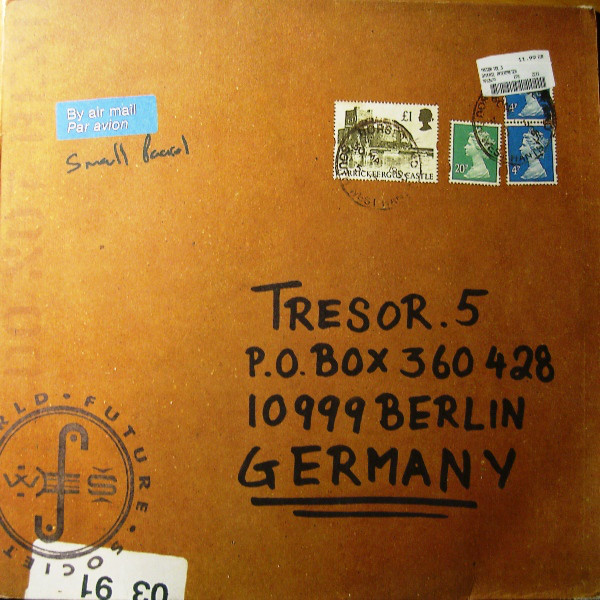 By air mail
Par avion
Small Parcel
£1
CARRICKFERGUS CASTLE
20P
4P
4P
TRESOR.5
P.O. BOX 360 428
10999 BERLIN
GERMANY
WORLD · FUTURE · SOCIETY
WFS
03 91